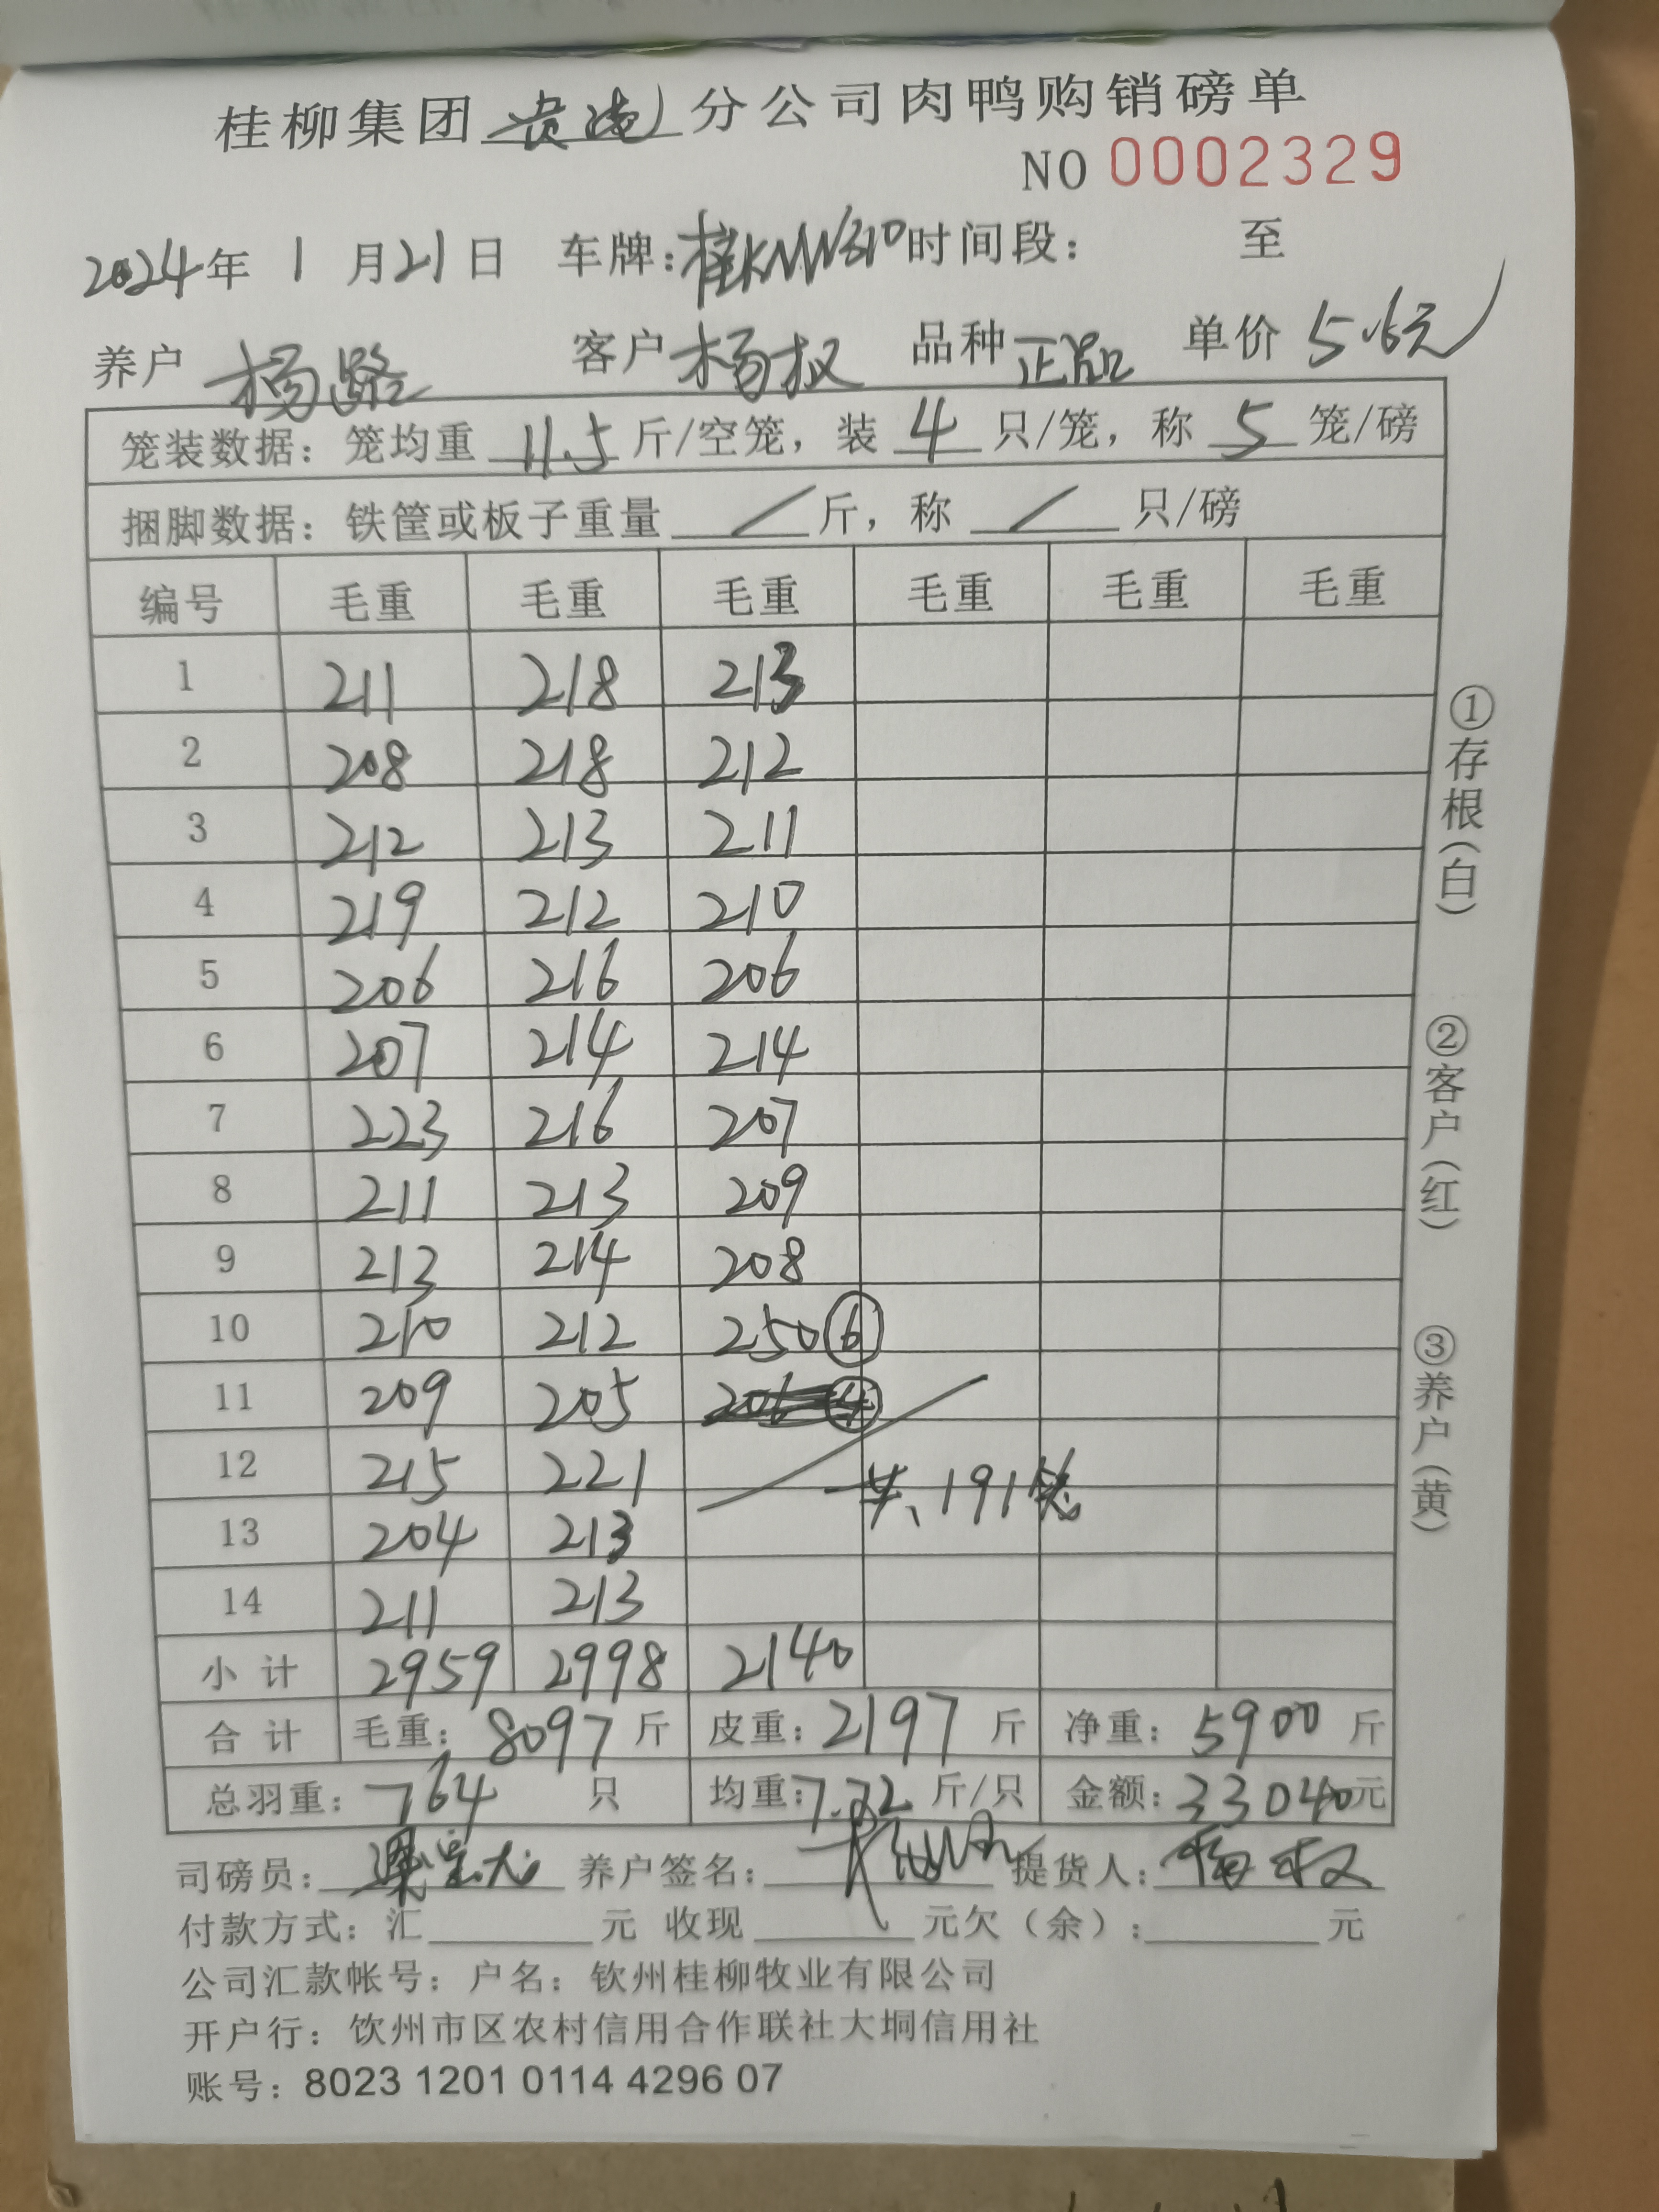 桂柳集团贵港分公司肉鸭购销磅单
NO 0002329
2024年 1 月21日 车牌:桂KNW310时间段: 至
养户 杨路 客户 杨权 品种 正品 单价 5.6元
笼装数据: 笼均重 11.5 斤/空笼, 装 4 只/笼, 称 5 笼/磅
捆脚数据: 铁筐或板子重量 / 斤, 称 / 只/磅
编号 毛重 毛重 毛重 毛重 毛重 毛重
1 211 218 213
2 208 218 212
3 212 213 211
4 219 212 210
5 206 216 206
6 207 214 214
7 223 216 207
8 211 213 209
9 213 214 208
10 210 212 250⑥
11 209 205
12 215 221 共、191笼
13 204 213
14 211 213
小计 2959 2998 2140
合计 毛重: 8097 斤 皮重: 2197 斤 净重: 5900 斤
总羽重: 764 只 均重:7.72 斤/只 金额: 33040元
司磅员: 养户签名: 提货人: 杨权
付款方式: 汇 元 收现 元欠(余): 元
公司汇款帐号: 户名: 钦州桂柳牧业有限公司
开户行: 饮州市区农村信用合作联社大垌信用社
账号: 8023 1201 0114 4296 07
①存根(白)
②客户(红)
③养户(黄)